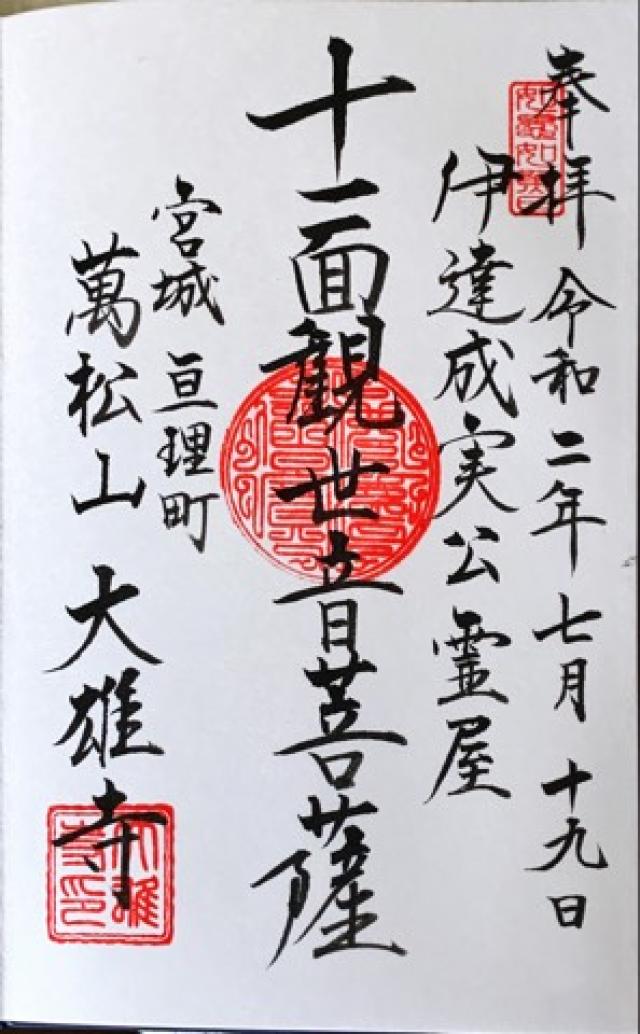 奉拝 令和二年七月十九日
伊達成実公霊屋
十一面観世音菩薩
宮城 亘理町
萬松山 大雄寺
大雄寺印